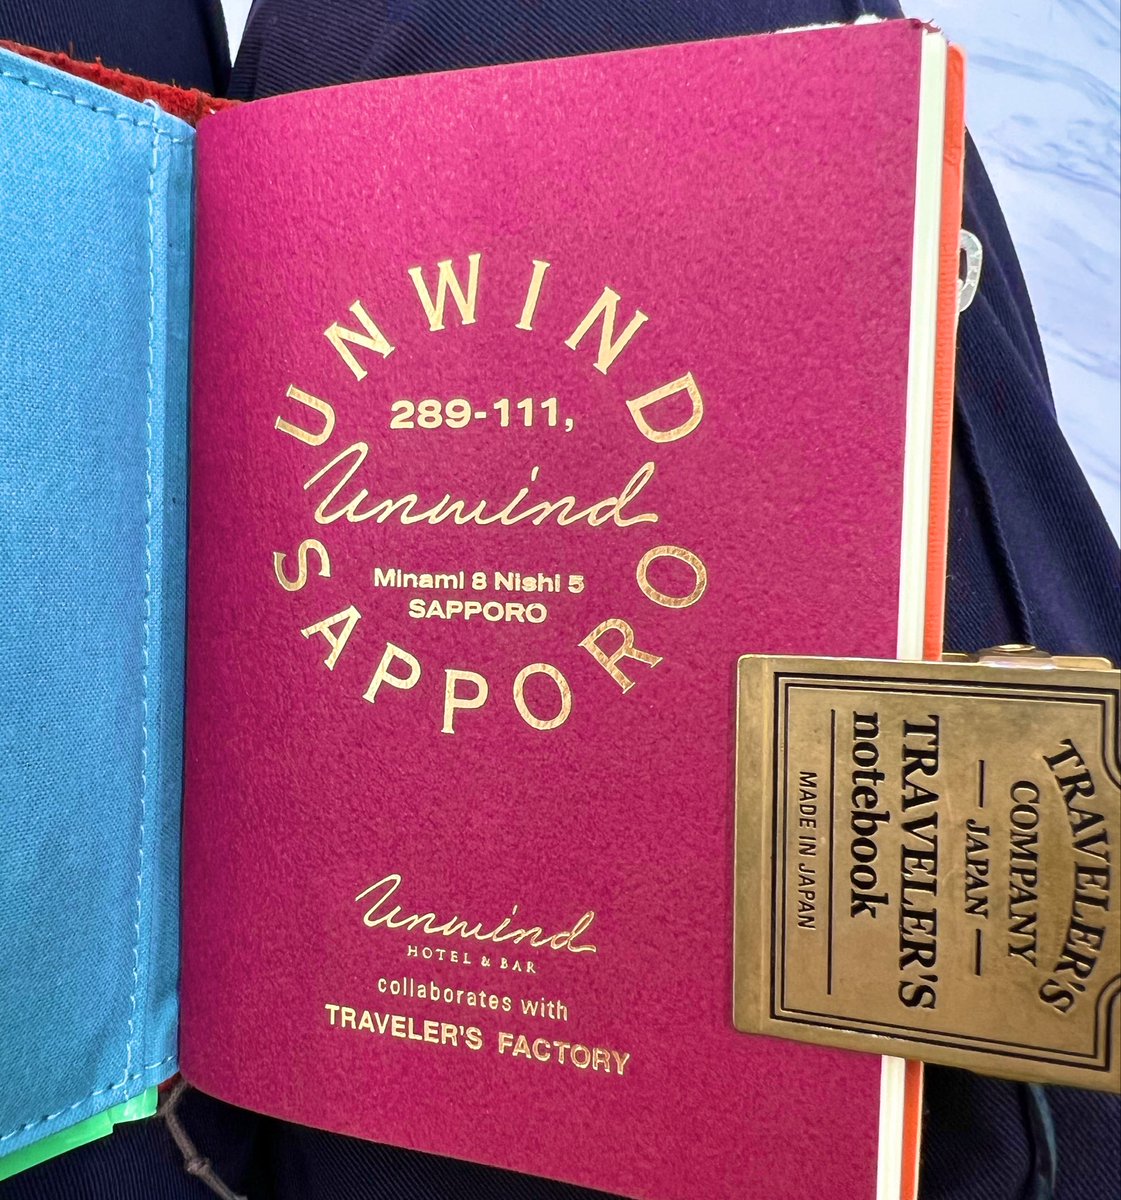 UNWIND
289-111,
Unwind
Minami 8 Nishi 5
SAPPORO
SAPPORO
Unwind
HOTEL & BAR
collaborates with
TRAVELER'S FACTORY
TRAVELER'S
COMPANY
JAPAN
TRAVELER'S
notebook
MADE IN JAPAN